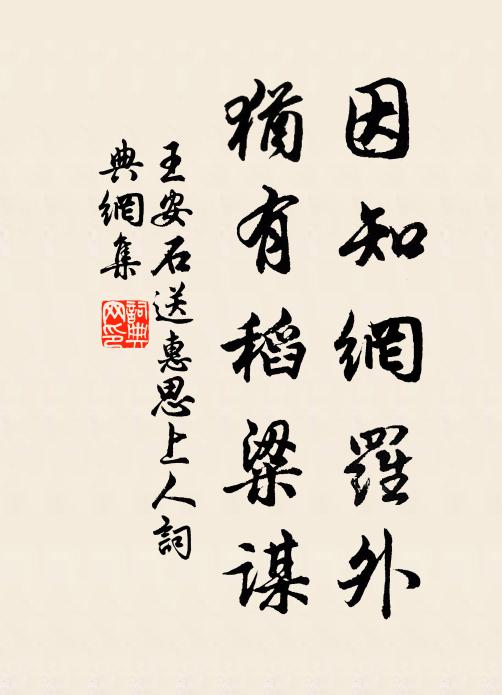 因知網羅外
猶有稻粱謀
王安石送惠思上人詞
典網集
詞典
网印